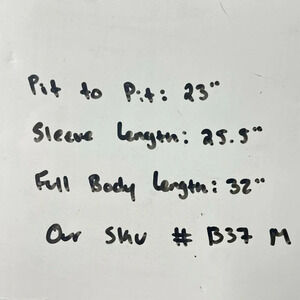 Pit to Pit: 23"
Sleeve Length: 25.5"
Full Body Length: 32"
Our Sku # B37 M